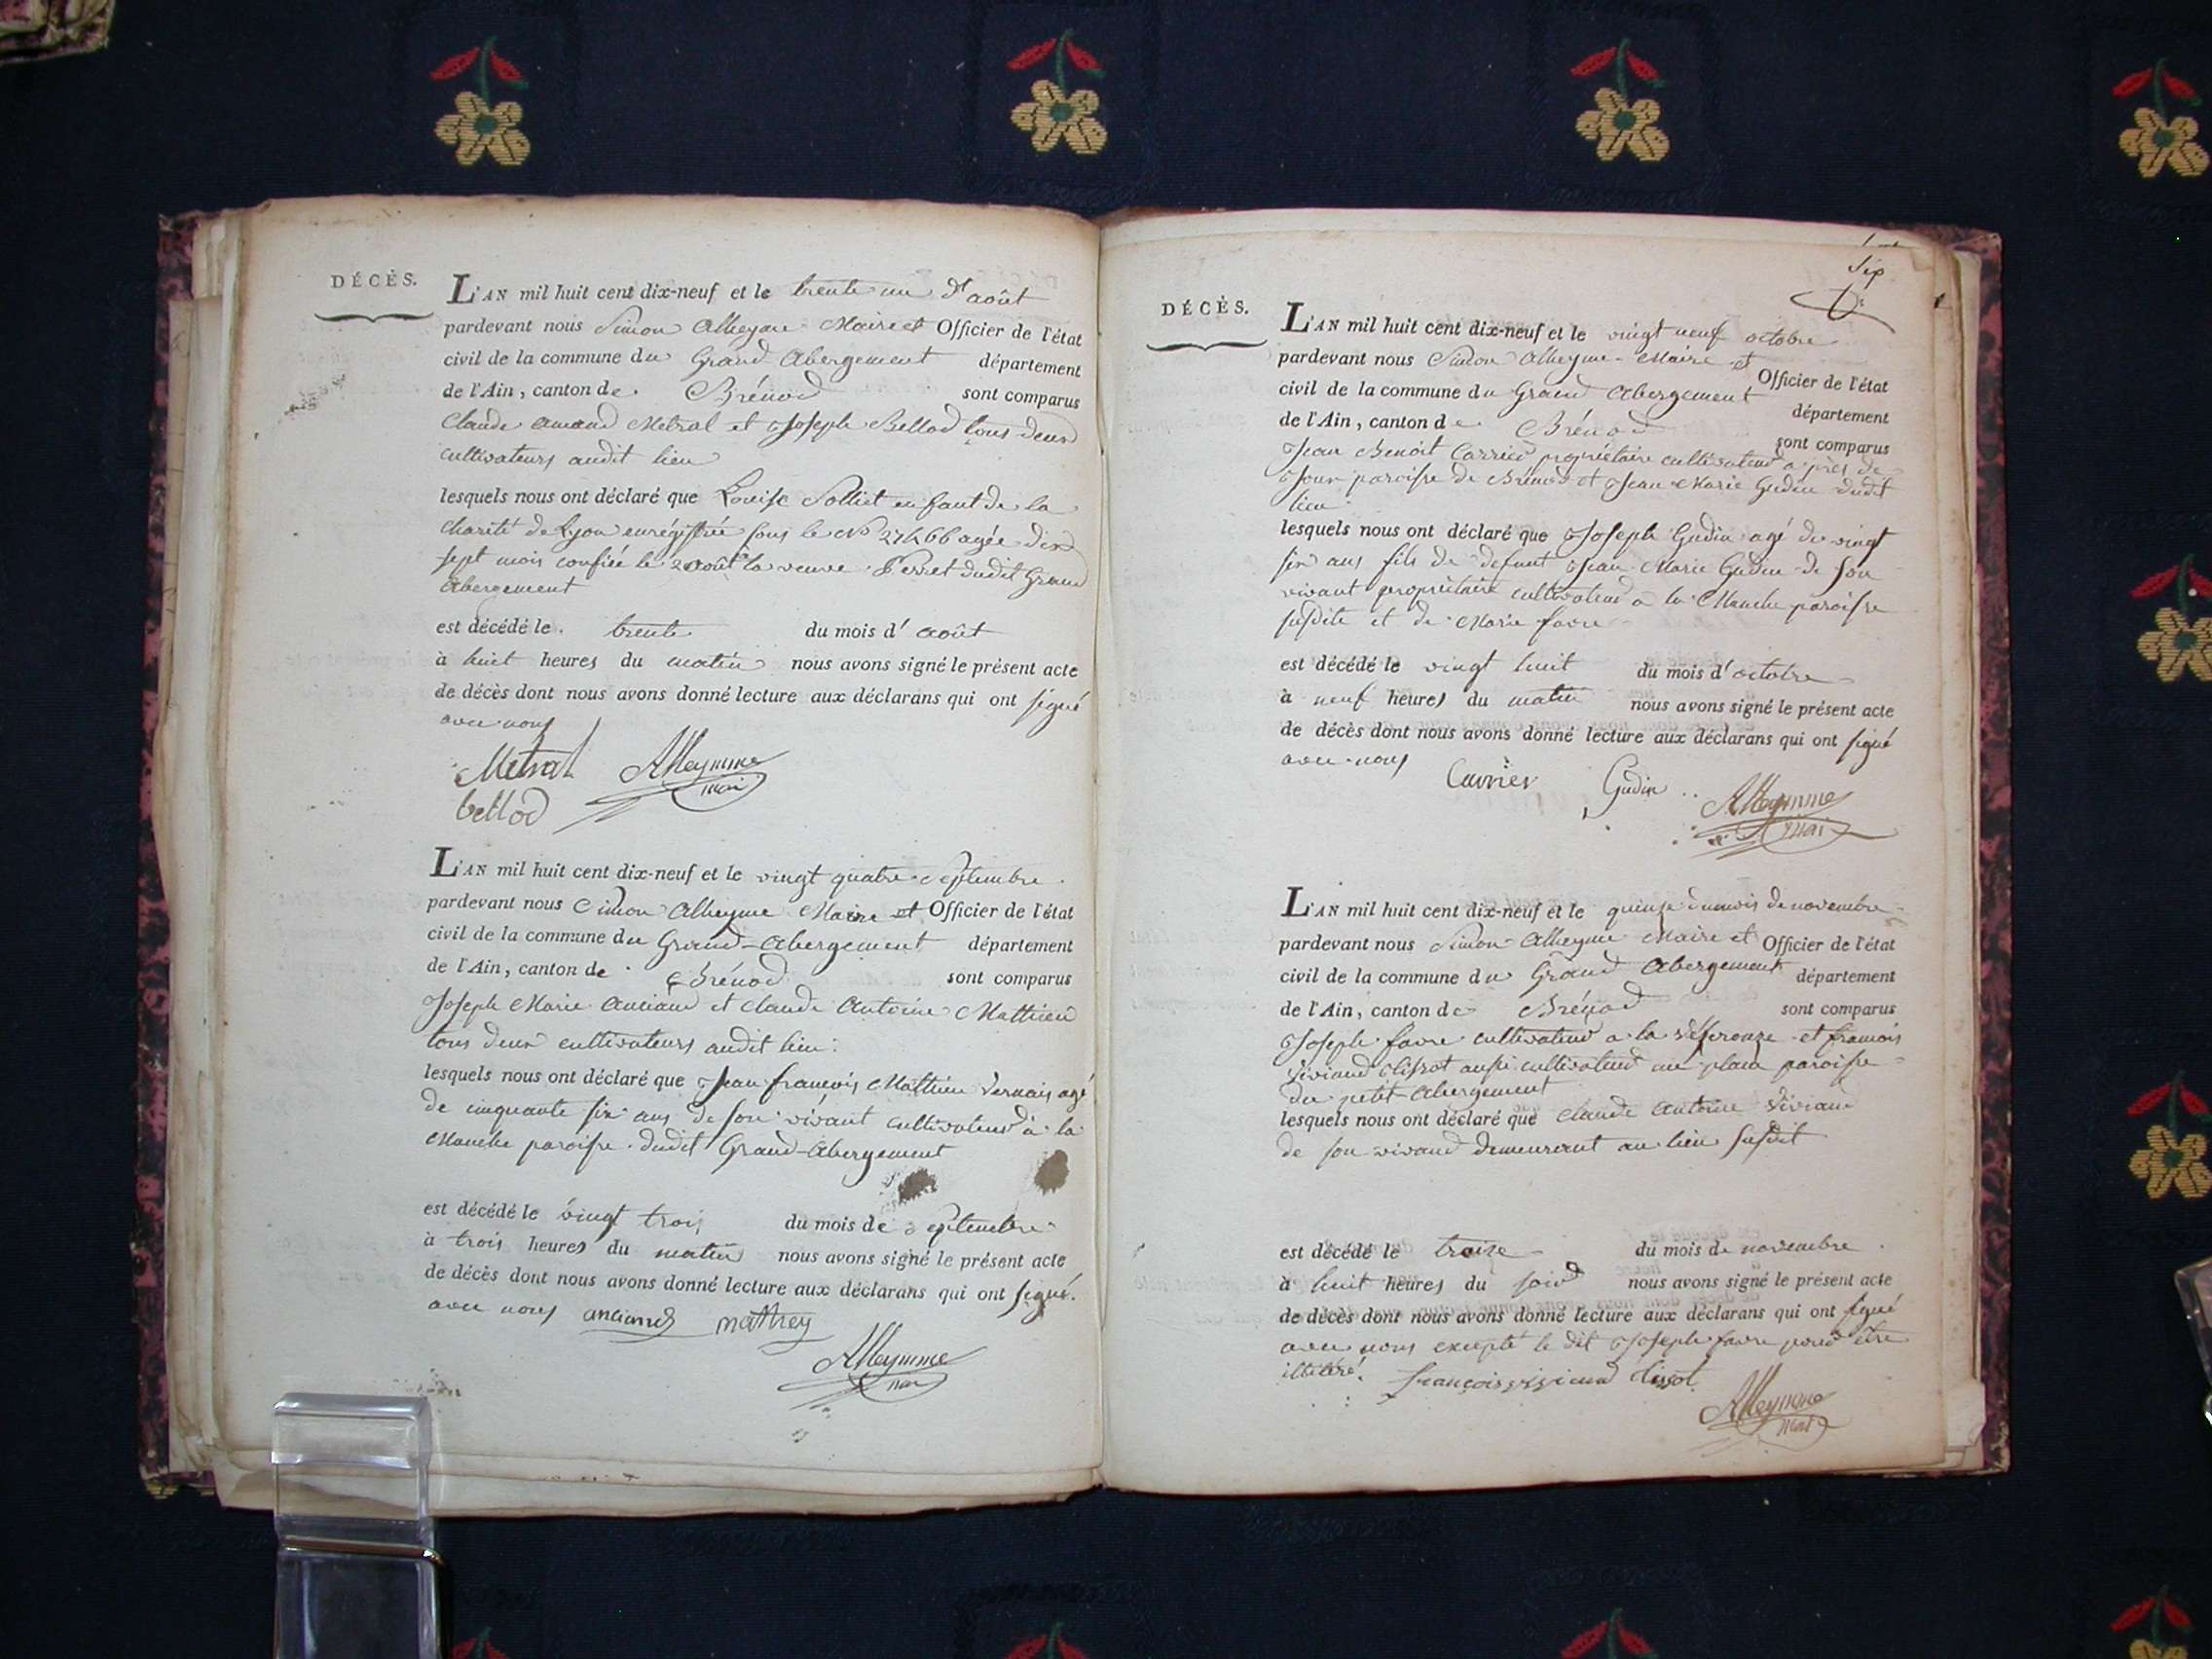 DÉCÈS.
L'AN mil huit cent dix-neuf et le trente un d'août
pardevant nous Simon Alleyme Maire et Officier de l'état
civil de la commune du Grand Abergement département
de l'Ain, canton de Brénod sont comparus
Claude amand Métral et Joseph Bellod tous deux
cultivateurs audit lieu
lesquels nous ont déclaré que Louise Solliet enfant de la
charité de Lyon enrégistrée sous le No agée dix
sept mois confiée le 2 août la veuve Perret dudit Grand
Abergement
est décédé le trente du mois d'août
à huit heures du matin nous avons signé le présent acte
de décès dont nous avons donné lecture aux déclarans qui ont signé
avec nous
Métral Alleymme
bellod maire
L'AN mil huit cent dix-neuf et le vingt quatre Septembre
pardevant nous Simon Alleyme Maire et Officier de l'état
civil de la commune du Grand-Abergement département
de l'Ain, canton de Brénod sont comparus
Joseph Marie Anciand et Claude Antoine Mathieu
tous deux cultivateurs audit lieu:
lesquels nous ont déclaré que Jean françois Mathieu Vernais agé
de cinquante six ans de son vivant cultivateur à la
Manche paroisse dudit Grand-Abergement
est décédé le vingt trois du mois de Septembre
à trois heures du matin nous avons signé le présent acte
de décès dont nous avons donné lecture aux déclarans qui ont signé.
avec nous anciand mathey
Alleymme
maire
Six
DÉCÈS.
L'AN mil huit cent dix-neuf et le vingt neuf octobre
pardevant nous Simon Alleyme Maire et Officier de l'état
civil de la commune du Grand Abergement département
de l'Ain, canton de Brénod sont comparus
Jean Benoit Carrier propriétaire cultivateur a près de
Jour paroisse de Brénod et Jean Marie Gudin dudit
lieu
lesquels nous ont déclaré que Joseph Gudin agé de vingt
six ans fils de defunt Jean Marie Gudin de son
vivant propriétaire cultivateur a la Manche paroisse
susdite et de Marie favre
est décédé le vingt huit du mois d'octobre
à neuf heures du matin nous avons signé le présent acte
de décès dont nous avons donné lecture aux déclarans qui ont signé
avec nous Carrier Gudin
Alleymme
maire
L'AN mil huit cent dix-neuf et le quinze du mois de novembre
pardevant nous Simon Alleyme Maire et Officier de l'état
civil de la commune du Grand Abergement département
de l'Ain, canton de Brénod sont comparus
Joseph favre cultivateur a la et francois
Viviand Clissot aussi cultivateur au plan paroisse
du petit Abergement
lesquels nous ont déclaré que claude Antoine Viviand
de son vivand demeurant au lieu susdit
est décédé le treize du mois de novembre
à huit heures du soir nous avons signé le présent acte
de décès dont nous avons donné lecture aux déclarans qui ont signé
avec nous excepté le dit Joseph favre pour être
illitéré. françois clissot
Alleymme
maire